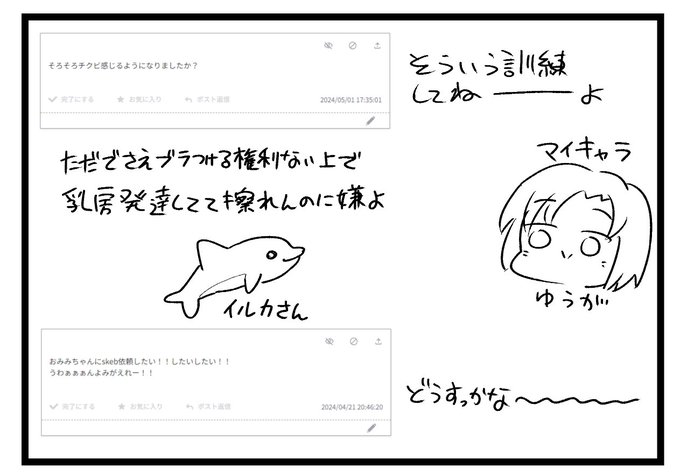 そろそろチクビ感じるようになりましたか？
完了にする お気に入り ポスト返信 2024/05/01 17:35:01
そういう訓練
してねーーーよ
ただでさえブラつける権利ない上で
乳房発達してて擦れんのに嫌よ
マイキャラ
ゆうが
イルカさん
おみみちゃんにskeb依頼したい！！したいしたい！！
うわぁぁぁんよみがえれー！！
完了にする お気に入り ポスト返信 2024/04/21 20:46:20
どうすっかな〜〜〜〜